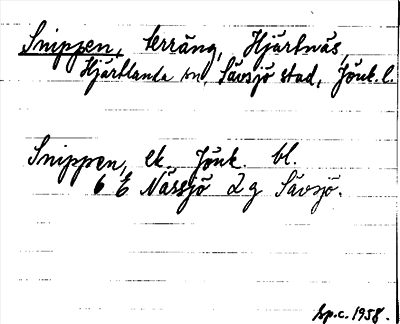 Snippen, terräng, Hjärtnäs,
Hjärtlanda sn, Sävsjö stad, Jönk. l.
Snippen, ek. Jönk. bl.
6 E Nässjö 2 g Sävsjö.
Sp.c. 1958.